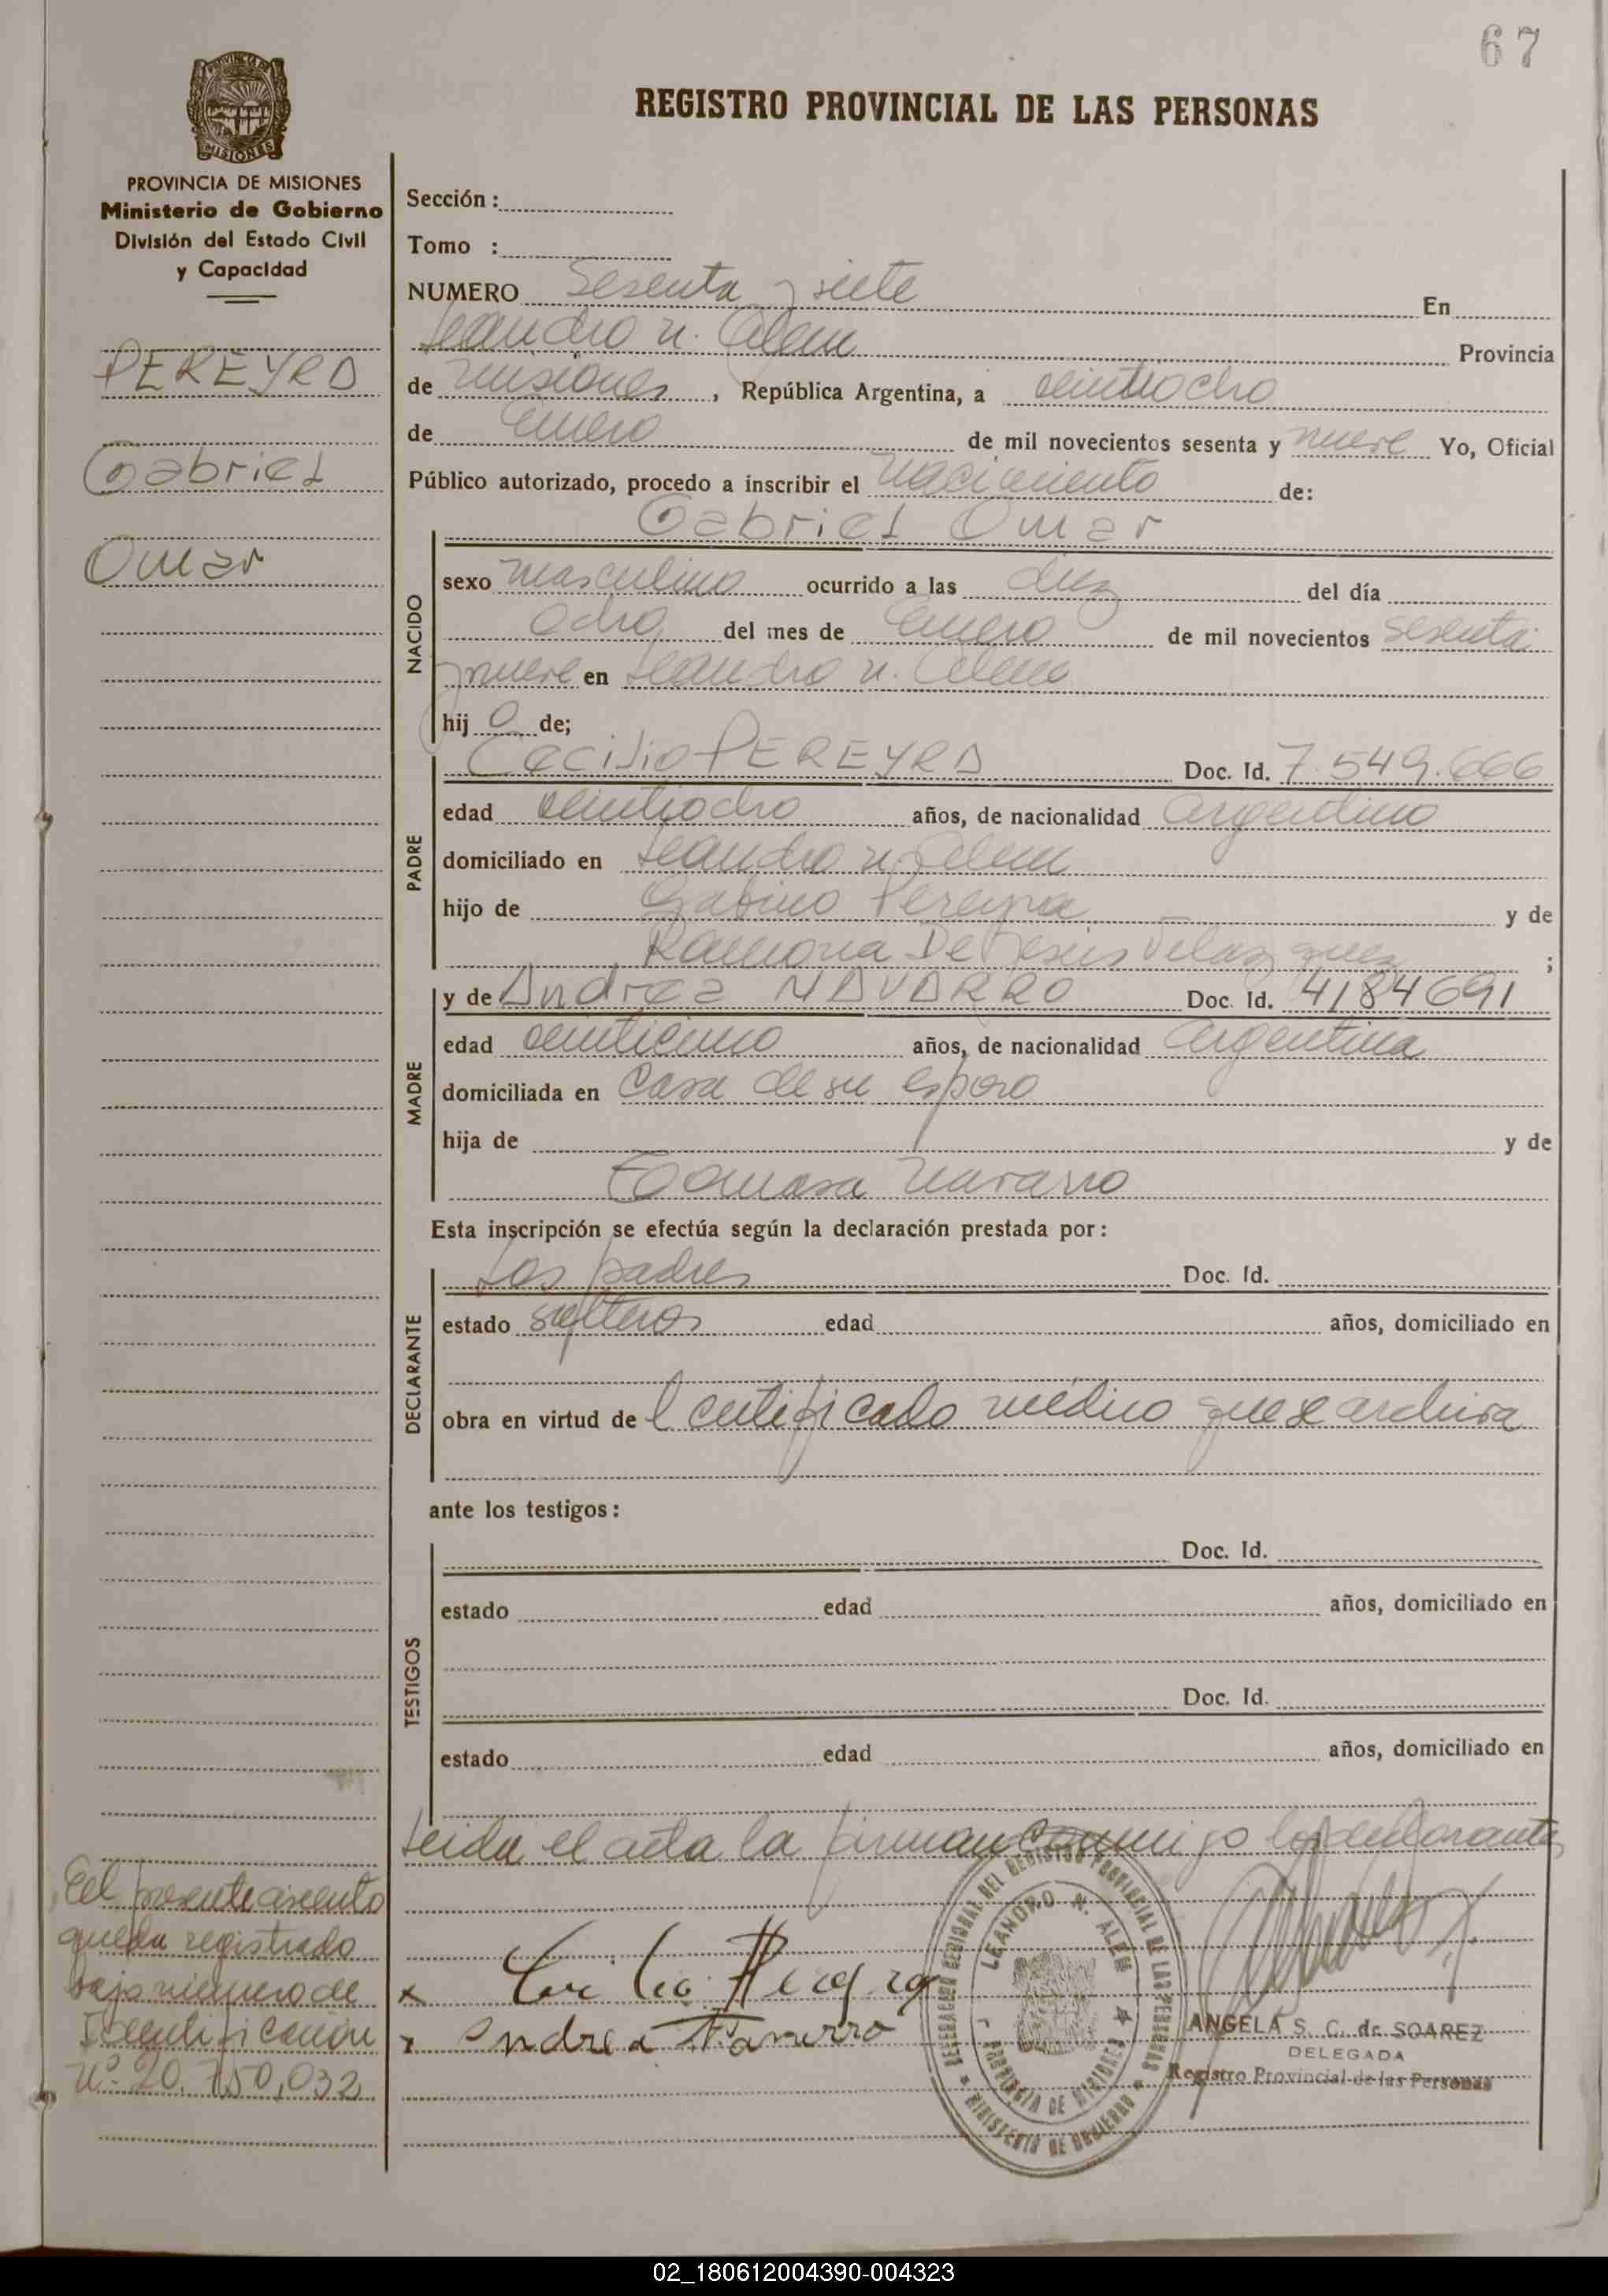 67
REGISTRO PROVINCIAL DE LAS PERSONAS
MISIONES
PROVINCIA DE MISIONES
Ministerio de Gobierno
División del Estado Civil
y Capacidad
PEREYRA
Gabriel
Omar
Sección :
Tomo :
NUMERO Sesenta y siete En
Leandro N. Alem Provincia
de Misiones, República Argentina, a veintiocho
de Enero de mil novecientos sesenta y nueve Yo, Oficial
Público autorizado, procedo a inscribir el Nacimiento de:
Gabriel Omar
NACIDO
sexo masculino ocurrido a las diez del día
ocho del mes de Enero de mil novecientos sesenta
y nueve en Leandro N. Alem
hijo de;
PADRE
Cecilio PEREYRA Doc. Id. 7.549.666
edad veintiocho años, de nacionalidad argentino
domiciliado en Leandro N. Alem
hijo de Gabino Pereyra y de
Ramona De Jesus Velazquez ;
MADRE
y de Andrea NAVARRO Doc. Id. 4184691
edad veinticinco años, de nacionalidad argentina
domiciliada en Casa de su esposo
hija de y de
Tomasa Navarro
Esta inscripción se efectúa según la declaración prestada por :
DECLARANTE
Los padres Doc. Id.
estado solteros edad años, domiciliado en
obra en virtud del certificado médico que se archiva
ante los testigos :
TESTIGOS
Doc. Id.
estado edad años, domiciliado en
Doc. Id.
estado edad años, domiciliado en
Leida el acta la firman conmigo los declarantes
El presente asiento
queda registrado
bajo número de
Identificación
Nº 20.750,032
x Cecilio Pereyra
x Andrea Navarro
DELEGACION REGIONAL DEL REGISTRO PROVINCIAL DE LAS PERSONAS
LEANDRO N. ALEM
PROVINCIA DE MISIONES
MINISTERIO DE GOBIERNO
ANGELA S. C. de SOAREZ
DELEGADA
Registro Provincial de las Personas
02_180612004390-004323